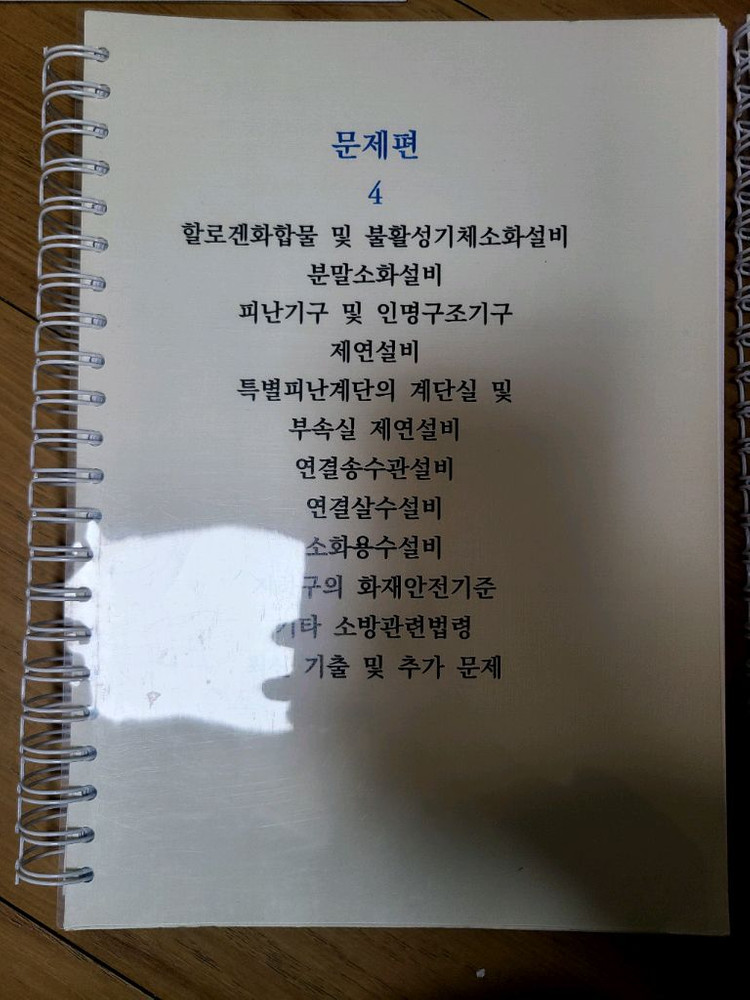 문제편
4
할로겐화합물 및 불활성기체소화설비
분말소화설비
피난기구 및 인명구조기구
제연설비
특별피난계단의 계단실 및
부속실 제연설비
연결송수관설비
연결살수설비
소화용수설비
화재안전기준
기타 소방관련법령
기출 및 추가 문제